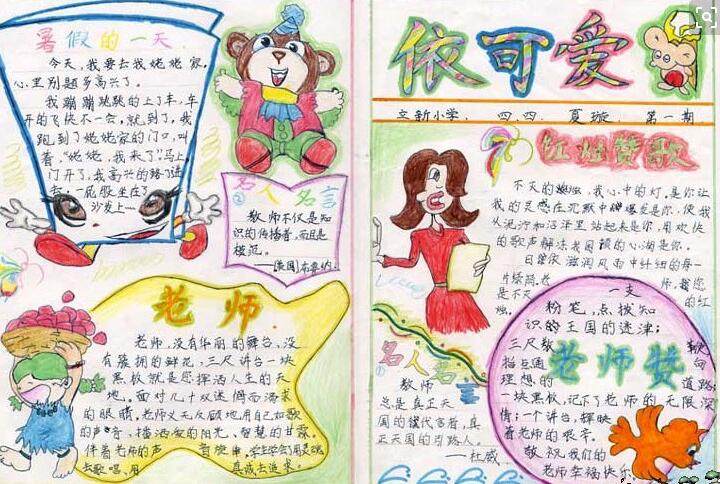 暑假的一天
今天,我要去我姥姥家,
心里别题多高兴了。
我蹦蹦跳跳的上了车,车
开的飞快不一会,就到了。我
跑到了姥姥家的门口,叫
着,“姥姥,我来了”马上
门开了,我高兴的
一屁股坐在了
沙发上
名人名言
②
教师不仅是知
识的传播者,而且是
模范。
——(美国)布鲁纳
老师
老师,没有华丽的舞台,没
有簇拥的鲜花,三尺讲台一块
黑板就是您挥洒人生的天
地。面对几十双迷惘而渴求
的眼睛。老师义无反顾地用自己如歌
的声音,播洒爱的阳光、智慧的甘霖。
伴着老师的声
去歌唱。用真诚去追求。
依可爱
立新小学。四.四。夏璇。第一期
红烛赞歌
不灭的蜡烛,我心中的灯。是你让
我的灵感在沉默中爆发是你,使我
从泥泞和沼泽里站起来是你,用欢快
的歌声解冻我困顿的心湖是你。
片绿简.老师,我您
是不灭的红
烛。
名人名言
①
教师
总是真正天
国的代言者,真
正天国的引路人。
——杜威
老师赞
一支
粉笔,点拨知
识的王国的迷津;
三尺教鞭
指点通向
理想的道路
一块黑板,记下了老师的无限深
情;一个讲台,辉映
着老师的艰辛。
敬祝我们的
老师幸福快乐